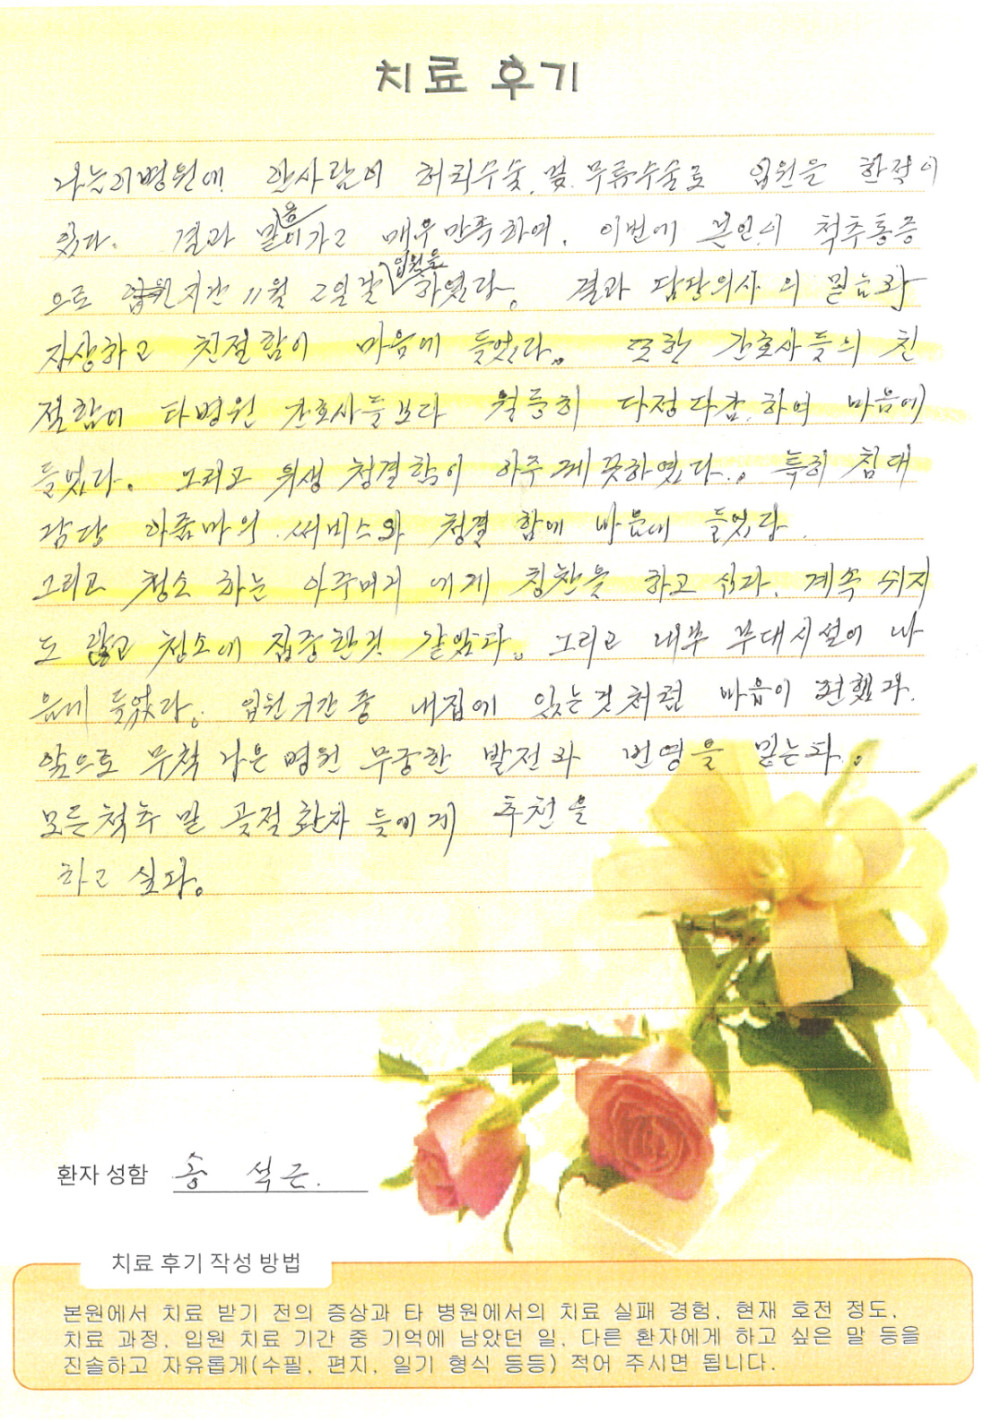 치료 후기
나는이병원에 안사람이 허리수술, 및 무릎수술로 입원을 한적이
있다. 결과 많이 가고 매우 만족하여, 이번에 본인이 척추통증
으로 기간 11월 2일날 입원을 하였다. 결과 담당의사의 믿음과
자상하고 친절함이 마음에 들었다. 또한 간호사들의 친
절함이 타병원 간호사들보다 월등히 다정다감하여 마음에
들었다. 그리고 위생 청결함이 아주 깨끗하였다. 특히 침대
담당 아줌마의 써비스와 청결함에 마음에 들었다.
그리고 청소 하는 아주머니 에게 칭찬을 하고 싶다. 계속 쉬지
도 않고 청소에 집중한것 같았다. 그리고 내부 부대시설이 마
음에 들었다. 입원기간 중 내집에 있는것처럼 마음이 편했다.
앞으로 무척 나은 병원 무궁한 발전과 번영을 믿는다.
모든척추 및 관절환자 들에게 추천을
하고 싶다.
환자 성함 송 석근.
치료 후기 작성 방법
본원에서 치료 받기 전의 증상과 타 병원에서의 치료 실패 경험, 현재 호전 정도,
치료 과정, 입원 치료 기간 중 기억에 남았던 일, 다른 환자에게 하고 싶은 말 등을
진솔하고 자유롭게(수필, 편지, 일기 형식 등등) 적어 주시면 됩니다.